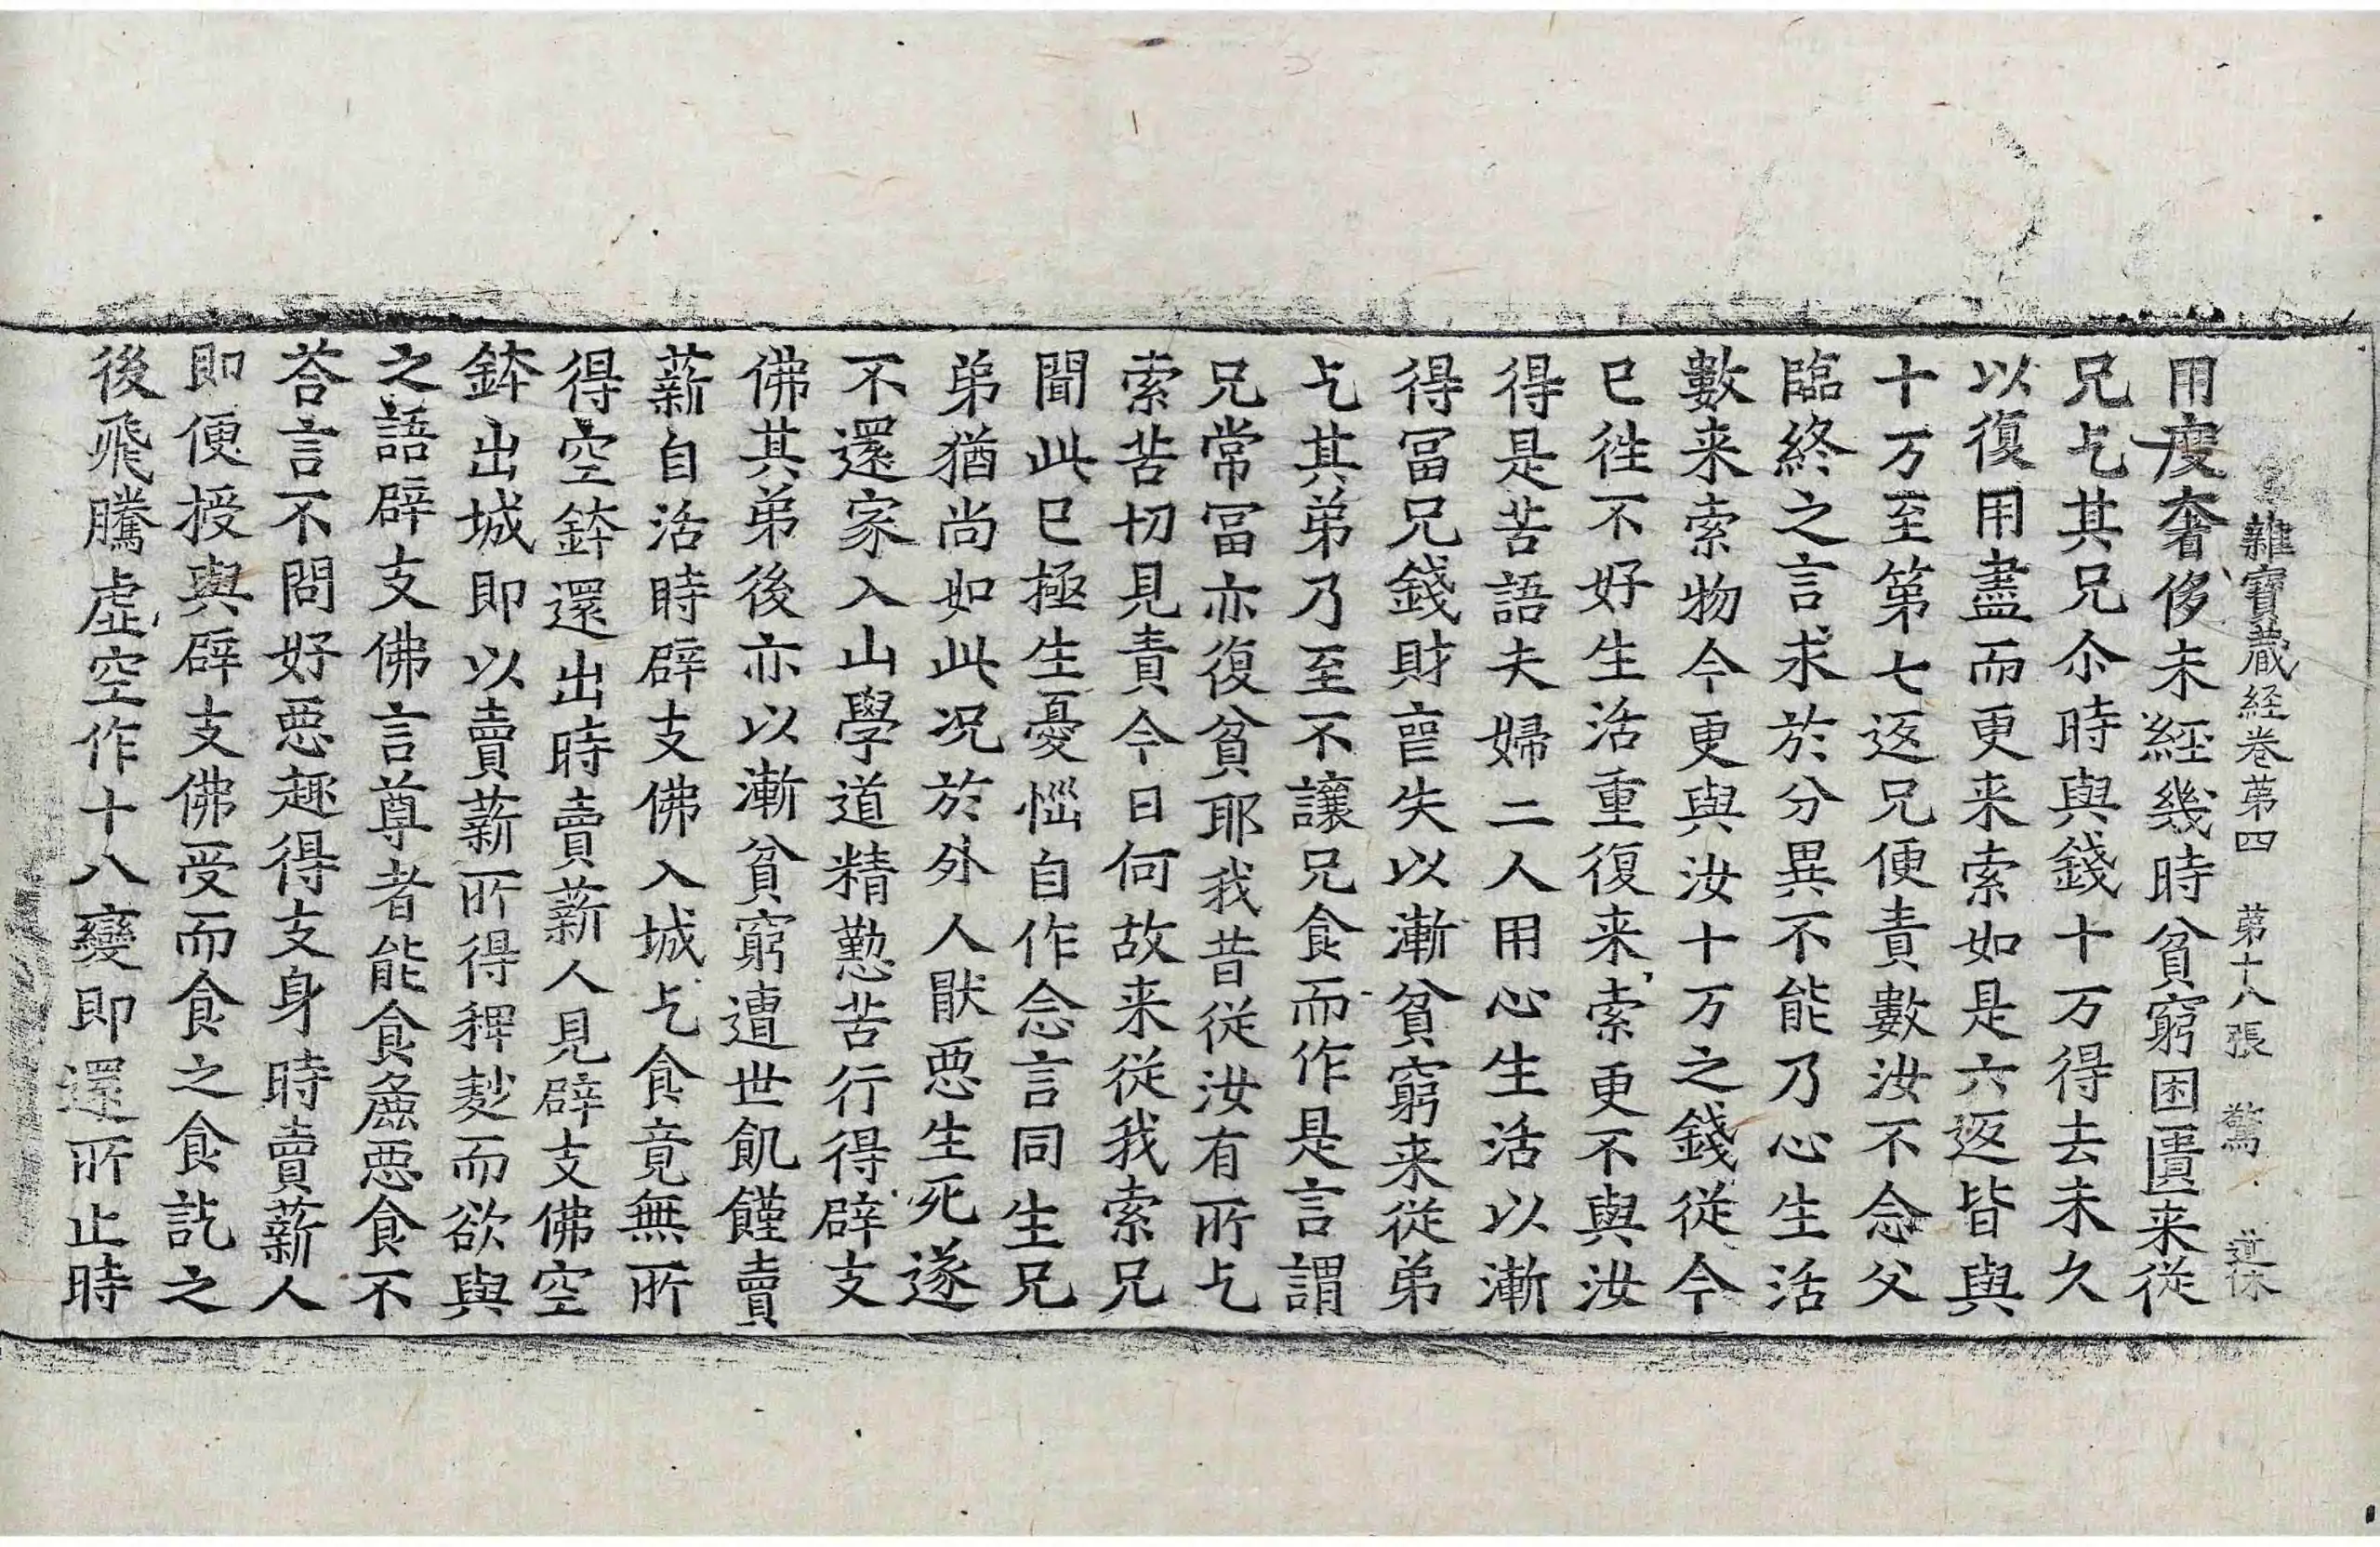 雜寶蔵経卷苐四　苐十八張　驚　道休
用度奢侈未經幾時貧窮困匱来従
兄乞其兄尒時與錢十万得去未久
以復用盡而更来索如是六返皆與
十万至第七返兄便責數汝不念父
臨終之言求於分異不能乃心生活
數来索物今更與汝十万之錢従今
已徃不好生活重復来索更不與汝
得是苦語夫婦二人用心生活以漸
得冨兄錢財亡失以漸貧窮来従弟
乞其弟乃至不讓兄食而作是言謂
兄常冨亦復貧耶我昔従汝有所乞
索苦切見責今日何故来従我索兄
聞此已極生憂惱自作念言同生兄
弟猶尚如此况於外人猒惡生死遂
不還家入山學道精懃苦行得辟支
佛其弟後亦以漸貧窮遭世飢饉賣
薪自活時辟支佛入城乞食竟無所
得空鉢還出時賣薪人見辟支佛空
鉢出城即以賣薪所得稗麨而欲與
之語辟支佛言尊者能食麁惡食不
荅言不問好惡趣得支身時賣薪人
即便授與辟支佛受而食之食訖之
後飛騰虛空作十八變即還所止時